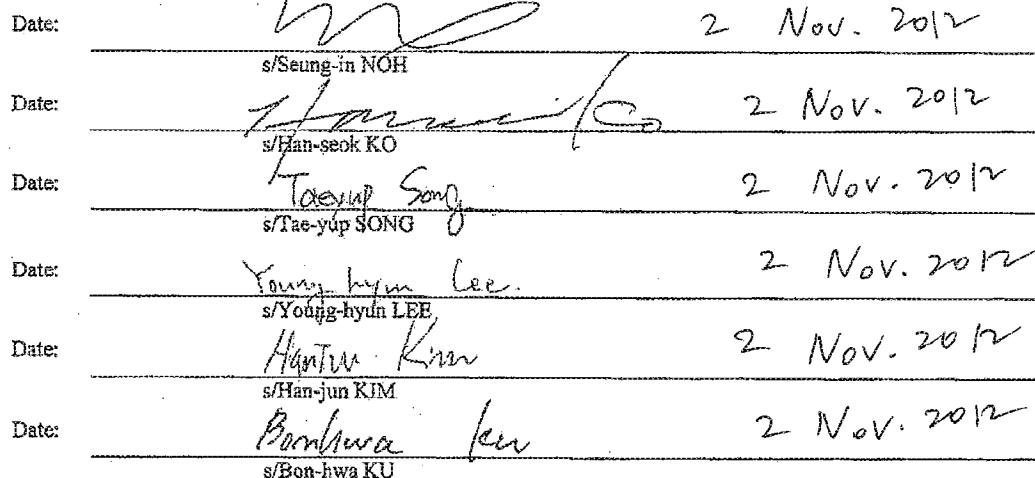 Date: 2 Nov. 2012
s/Seung-in NOH
Date: 2 Nov. 2012
s/Han-seok KO
Date: Taeyup Song 2 Nov. 2012
s/Tae-yup SONG
Date: Young hyun Lee. 2 Nov. 2012
s/Young-hyun LEE
Date: HanJun Kim 2 Nov. 2012
s/Han-jun KIM
Date: Bonhwa Ku 2 Nov. 2012
s/Bon-hwa KU